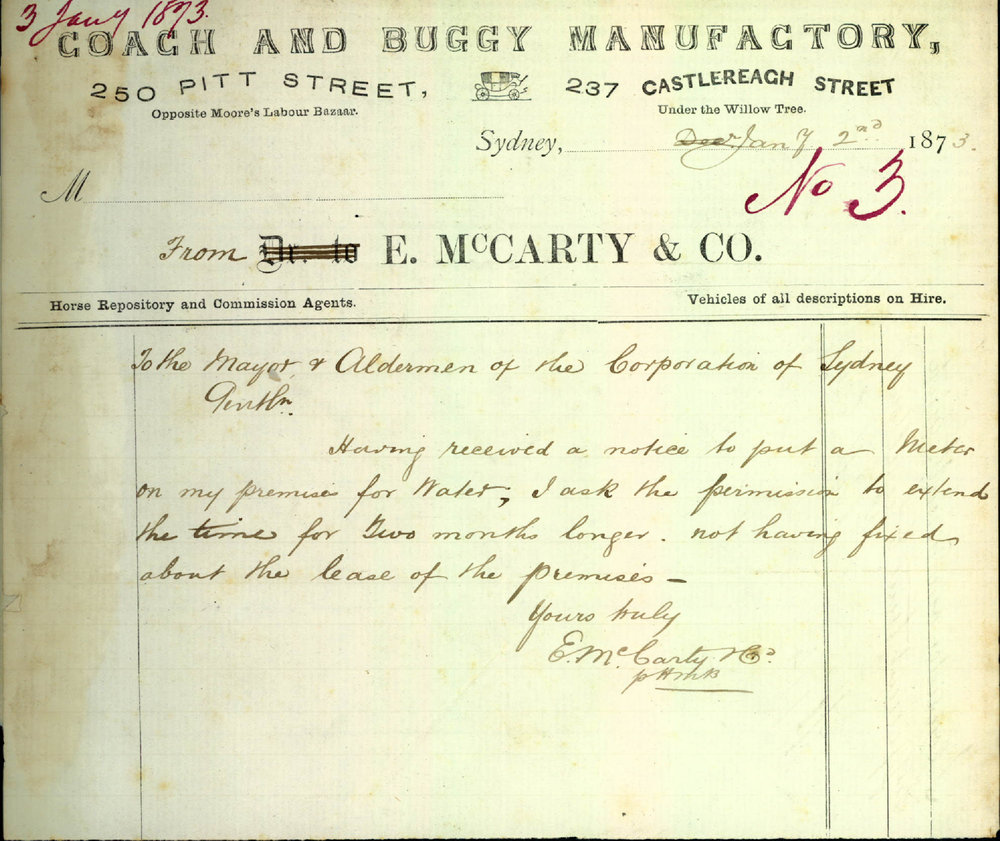 3 Jany 1873.
COACH AND BUGGY MANUFACTORY,
250 PITT STREET, 237 CASTLEREAGH STREET
Opposite Moore's Labour Bazaar. Under the Willow Tree.
Sydney, Decr Jany 2nd 1873.
M
No 3.
From Dr. to E. McCARTY & CO.
Horse Repository and Commission Agents. Vehicles of all descriptions on Hire.
To the Mayor & Aldermen of the Corporation of Sydney
Gentln.
Having received a notice to put a Meter
on my premises for Water, I ask the permission to extend
the time for Two months longer. not having fixed
about the lease of the premises –
Yours truly
E. McCarty & Co.
p HMB